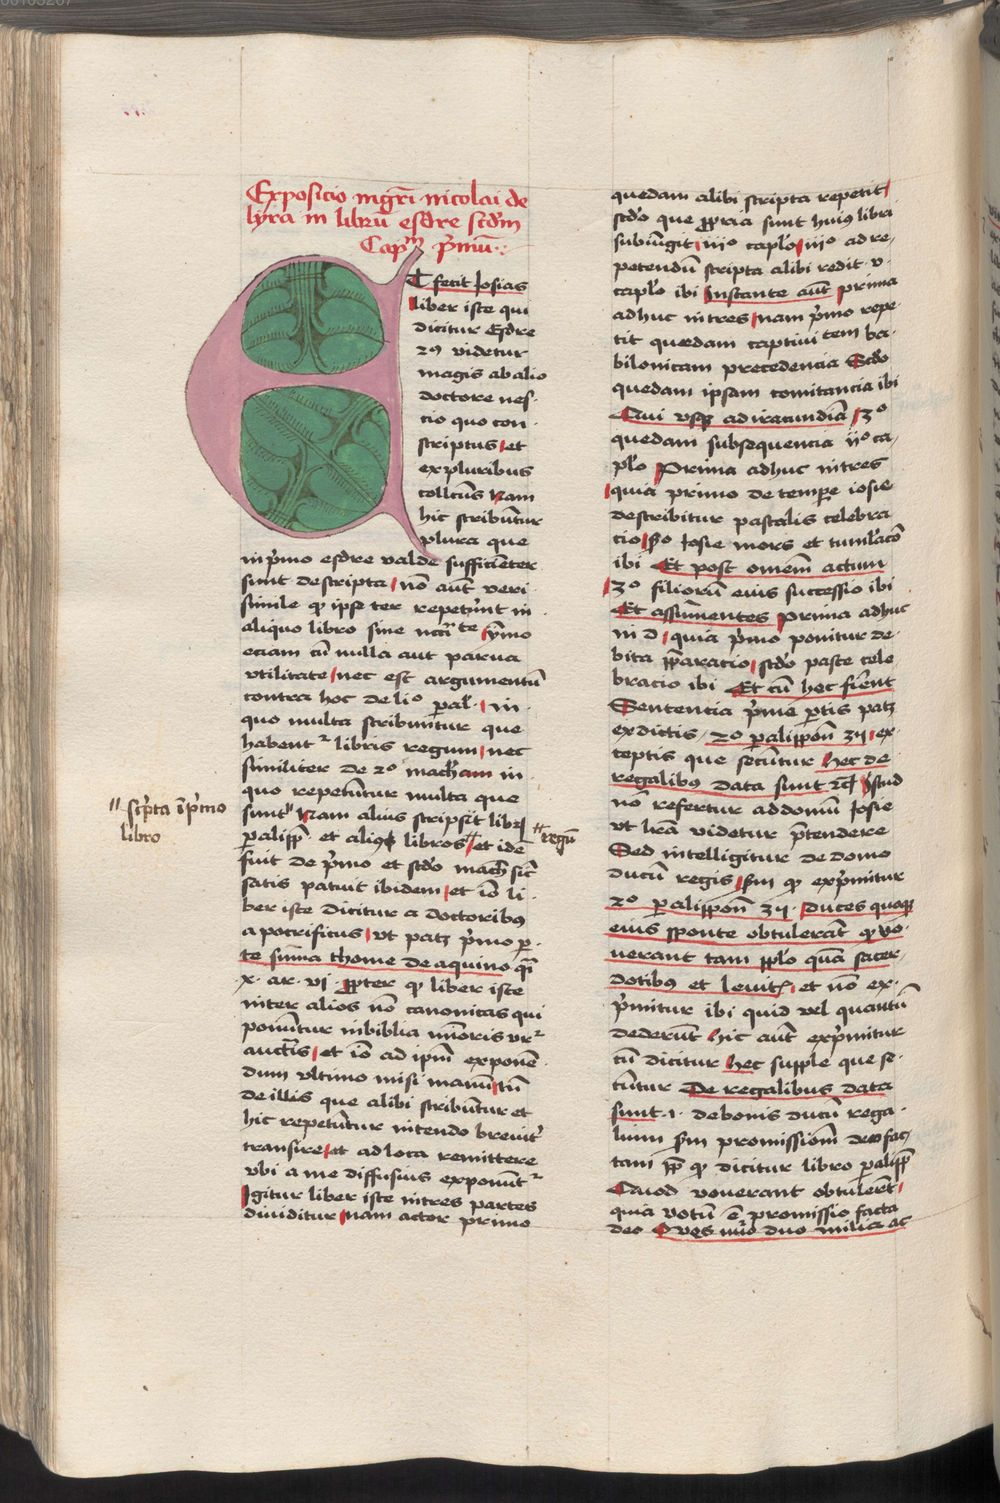 Exposicio mgr̄i nicolai de
lyra in librū esdre scd̄m
Capm̄ p̄mū
Et fecit Josias
liber iste qui
dicitur Esdre
2us videtur
magis ab alio
doctore nes-
cio quo con-
scriptus et
ex pluribus
collectus Nam
hic scribūtur
plura que
in p̄mo esdre valde sufficiēter
sunt descripta nō aūt veri-
simile qd ipse ter repetiv̄it in
aliquo libro sine ncc̄ite ymo
eciam cū nulla aut parua
vtilitate nec est argumentū
contra hoc de lio paral. in
quo multa scribuntur que
habent libris regum nec
similiter de 2o mach̄am in
quo repetūtur multa que
sunt Nam alius scripsit librū
peralipp̄. et alius libros et ide
fuit de p̄mo et scdo mach̄ sic̄
satis patuit ibidem et iō li-
ber iste dicitur a doctoribus
apocrificus vt patz p̄mo p-
te sum̄a thome de aquino q̄
x. ar. vi. ꝓpter qd liber iste
inter alios nō canonicas qui
ponūtur in biblia mīoris vr̄
auct̄is et iō ad ipm̄ exponē-
dum vltimo misi manū tū
de illis que alibi scribūtur et
hic repetūtur intendo breuit̄
transire et ad loca remittere
vbi a me diffusius exponūtr
Igitur liber iste in tres partes
diuiditur nam actor primo
scp̄ta ī p̄mo
libro
regū
quedam alibi scripta repetit
scdo que ꝓpria sunt huius libri
subiūgit iiio caplo iiio ad re-
petendū scripta alibi redit v.
caplo ibi Instante aūt prima
adhuc in tres nam p̄mo repe-
tit quedam captiuitatem ba-
bilonicam precedencia Scdo
quedam ipsam comitancia ibi
Qui vsqȝ ad iracundiā 3o
quedam subsequencia iio ca-
plo Prima adhuc in tres
quia primo de tempe iosie
describitur pascalis celebra
cio scdo Josie mors et tumlacō
ibi Et post omēm actum
3o filiorū eius successio ibi
Et assūmentes Prima adhuc
in d quia p̄mo ponitur de-
bita p̄paracio scdo pasce cele-
bracio ibi Et cū hec fierent
Sentencia p̄me ptis patz
ex dictis 2o paralippom̄ 35 ex-
ceptis que secūtur hec de
regalibus data sunt rc̄ Istud
nō refertur ad domū Josie
vt lrā videtur p̄tendere
Sed intelligitur de domo
ducū regis scd̄m qd exp̄mitur
2o paralippom̄ 35. duces quoqȝ
eius sponte obtulerāt qd vo-
uerant tam pplo quā sacer-
dotibus et leuitis et nō ex-
p̄mitur ibi quid vel quantū
dederūt hic aūt exp̄mitur
cū dicitur hec supple que se-
cūtur De regalibus data
sunt .i. de bonis ducū rega-
lium scd̄m promissionē deo fac
tam p̄p qd dicitur libro paralipp̄
Quod vouerant obtulerūt
quia votū ē promissio facta
deo Oves nūo duo milia ac